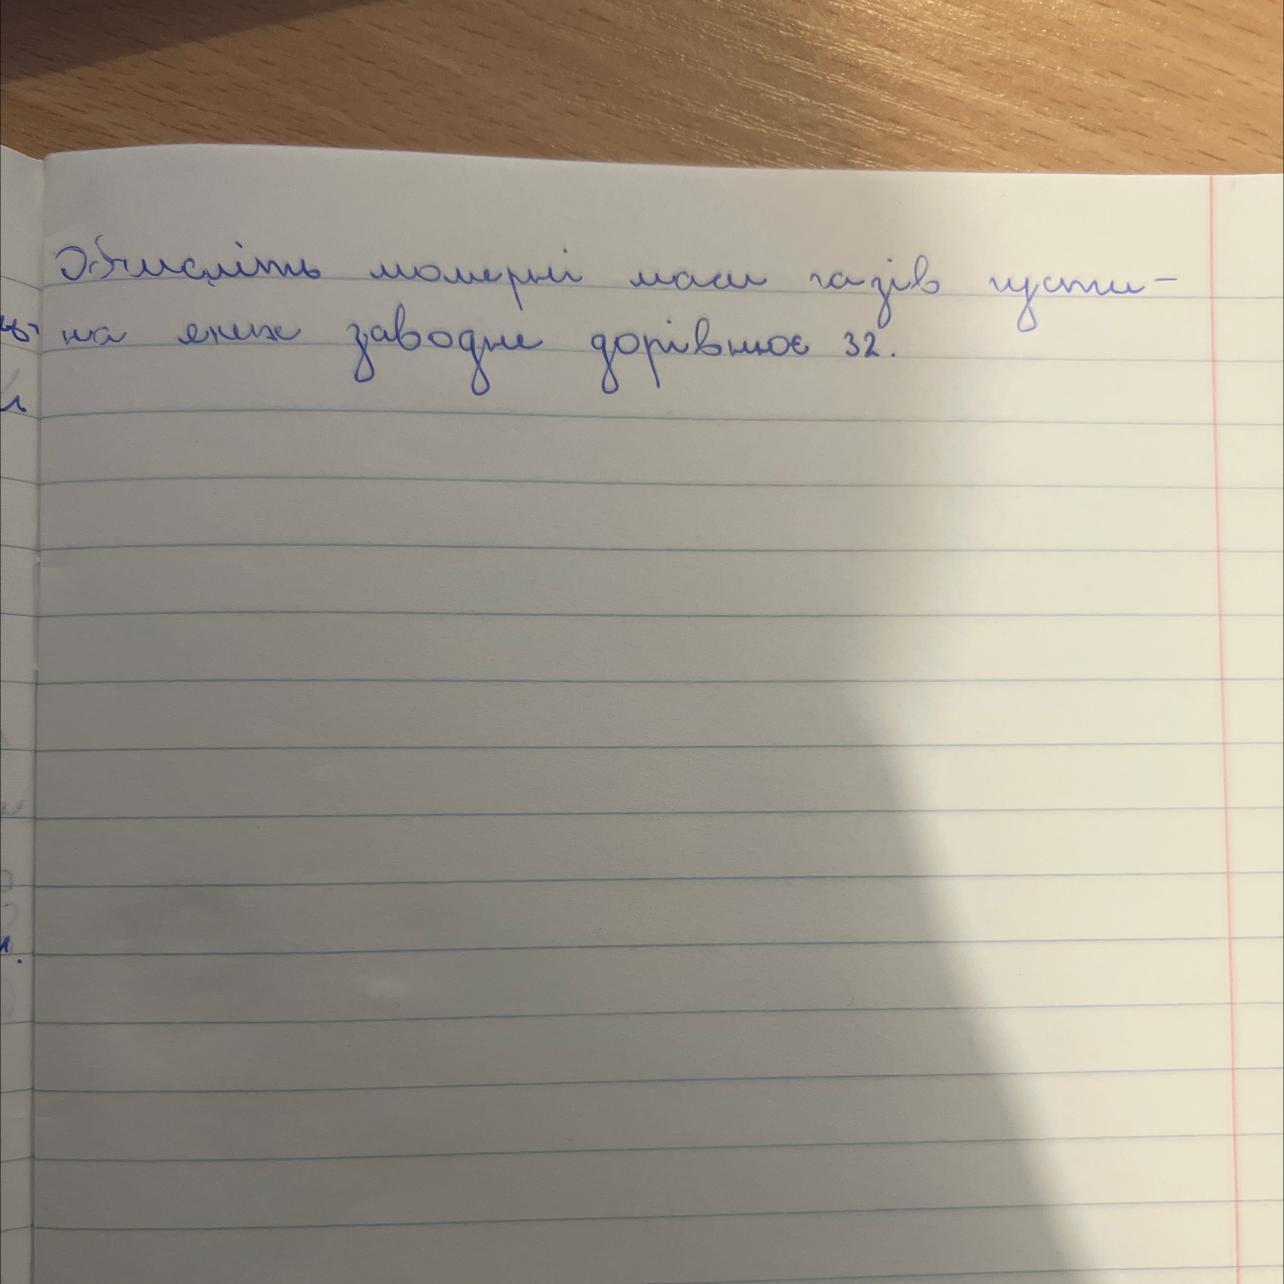 Обчисліть молярні маси газів густи-
на яких заводнє дорівнює 32.